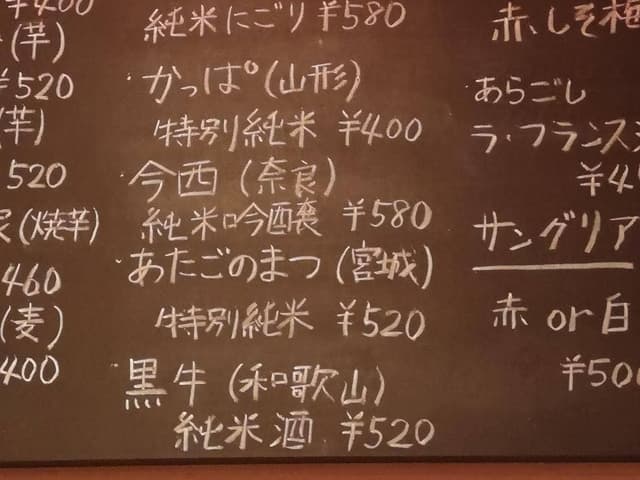 ¥400
(芋)
¥520
(芋)
520
(焼芋)
460
(麦)
400
純米にごり ¥580
・かっぱ(山形)
特別純米 ¥400
・今西(奈良)
純米吟醸 ¥580
・あたごのまつ(宮城)
特別純米 ¥520
・黒牛(和歌山)
純米酒 ¥520
赤しそ梅
あらごし
ラ・フランス
¥45
サングリア
赤 or 白
¥500